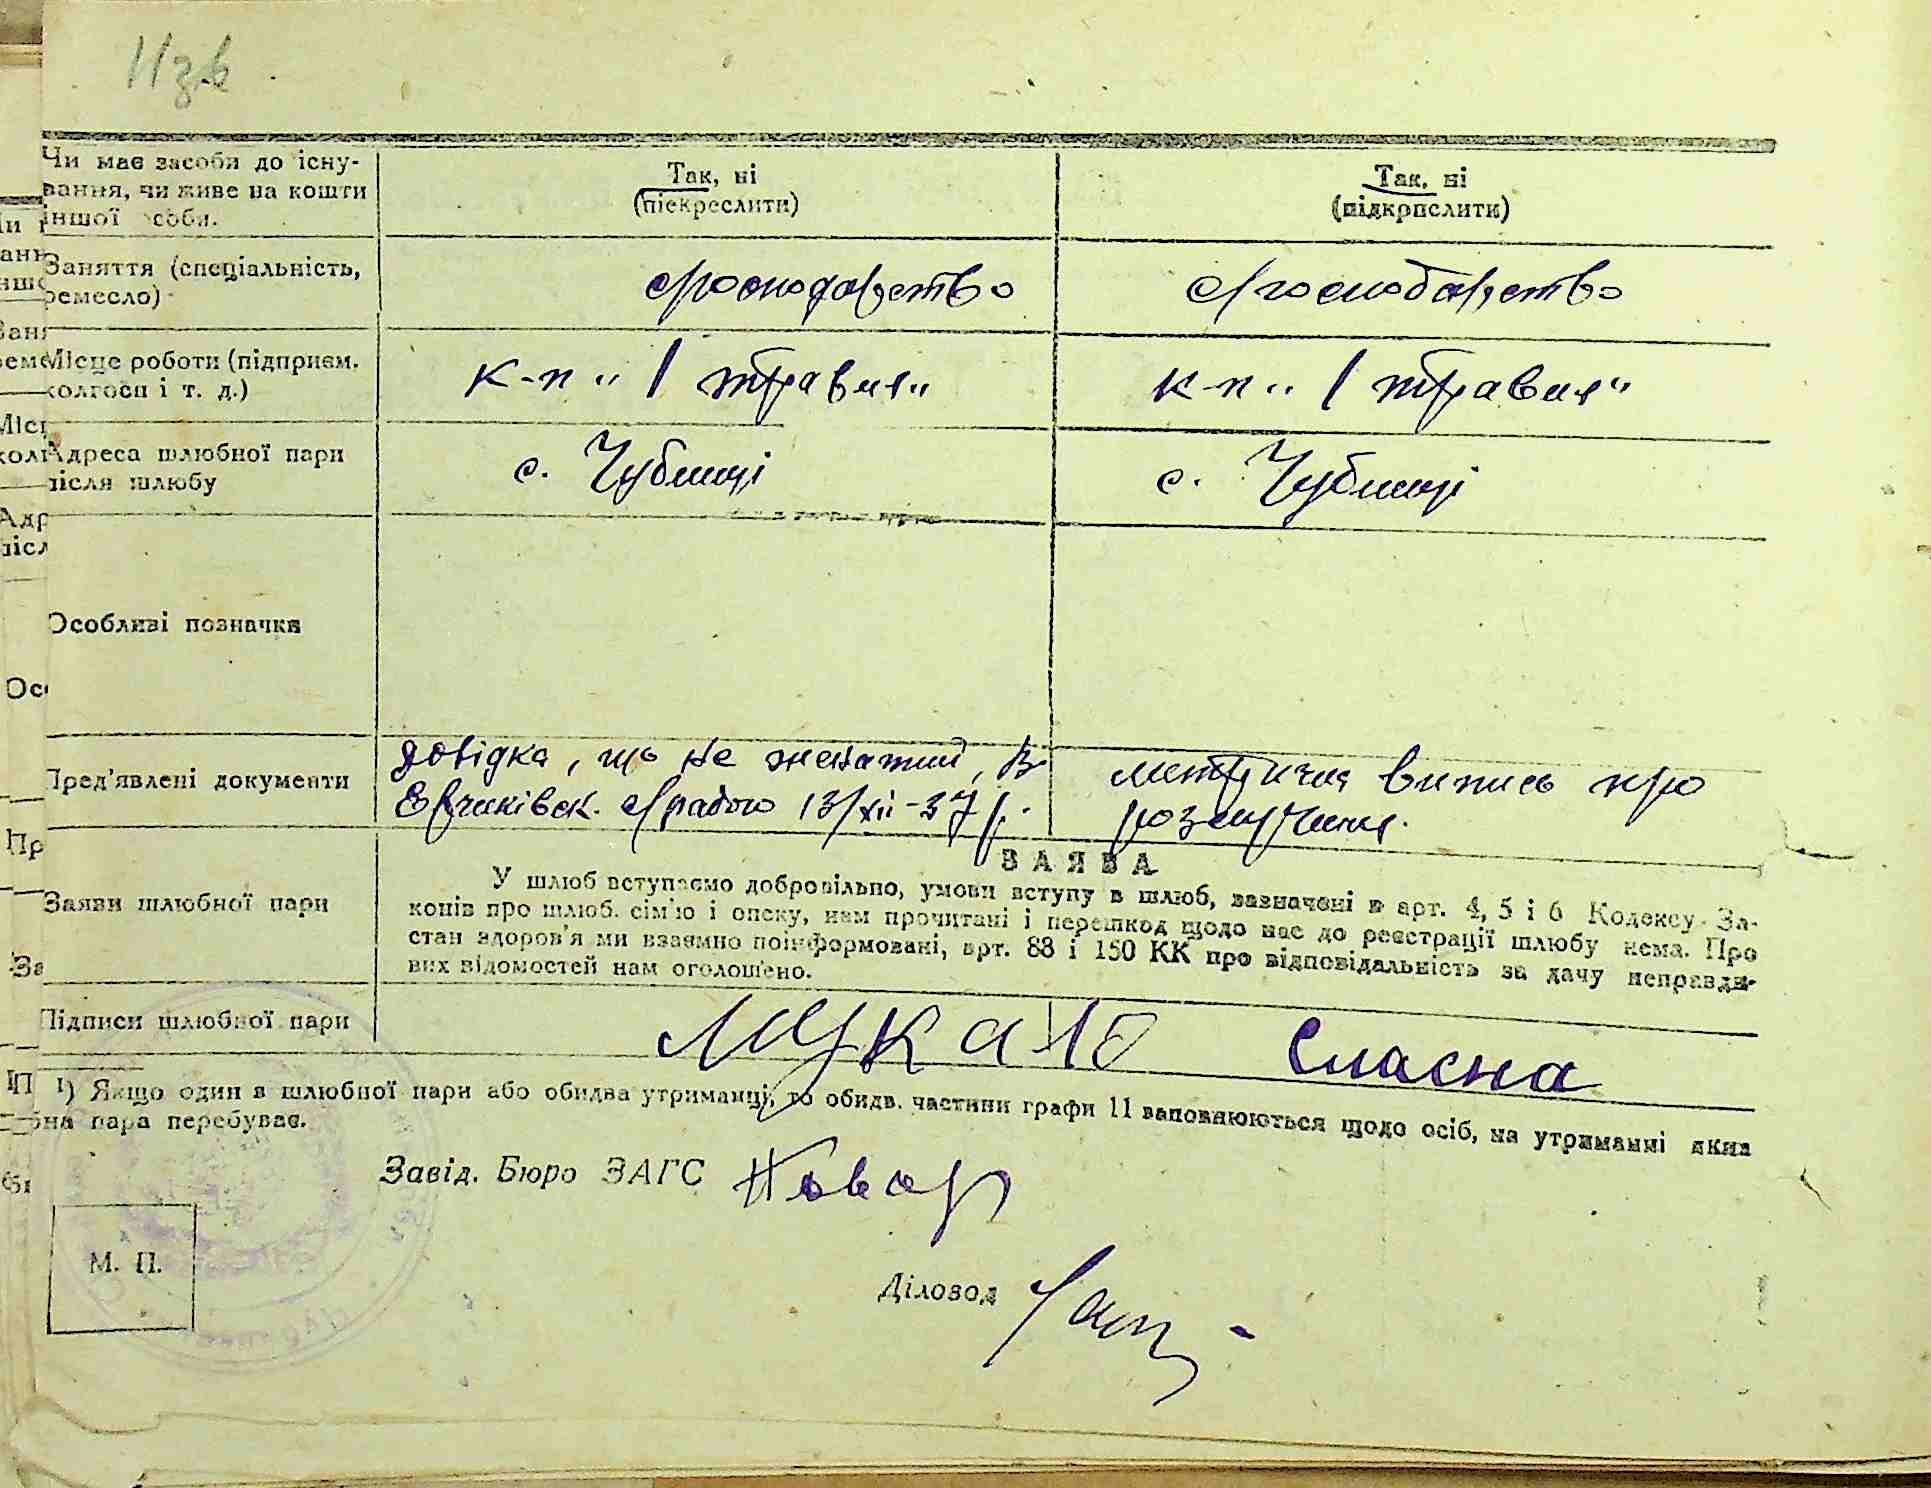 11 зв
Чи має засоби до існу-
вання, чи живе на кошти
іншої особи.
Так, ні
(піскреслити)
Так, ні
(підкрпслити)
Заняття (спеціальність,
ремесло)
с/господарство
с/господарство
Місце роботи (підприєм.
колгосп і т. д.)
к-п „1 травня„
к-п „1 травня"
Адреса шлюбної пари
після шлюбу
с. Чубинці
с. Чубинці
Особливі позначки
Пред'явлені документи
довідка, що не женатий, в.
с/радою 13/XII-37 р.
метрична випись про
розлучення.
Заяви шлюбної пари
ЗАЯВА
У шлюб вступаємо добровільно, умови вступу в шлюб, зазначені в арт. 4, 5 і 6 Кодексу За-
конів про шлюб. сім'ю і опеку, нам прочитані і перешкод щодо нас до реєстрації шлюбу нема. Про
стан здоров'я ми взаємно поінформовані, арт. 88 і 150 КК про відповідальність за дачу неправди-
вих відомостей нам оголошено.
Підписи шлюбної пари
Мукаю
Спасна
1) Якщо один з шлюбної пари або обидва утриманці, то обидв. частини графи 11 заповнюються щодо осіб, на утриманні яких
бна пара перебуває.
Завід. Бюро ЗАГС
М. П.
Діловод